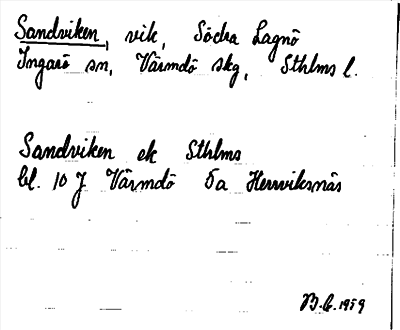 Sandviken, vik, Södra Lagnö
Ingarö sn, Värmdö skg, Sthlms l.
Sandviken ek Sthlms
bl. 10 J Värmdö 5a Herrviksnäs
B.G. 1959